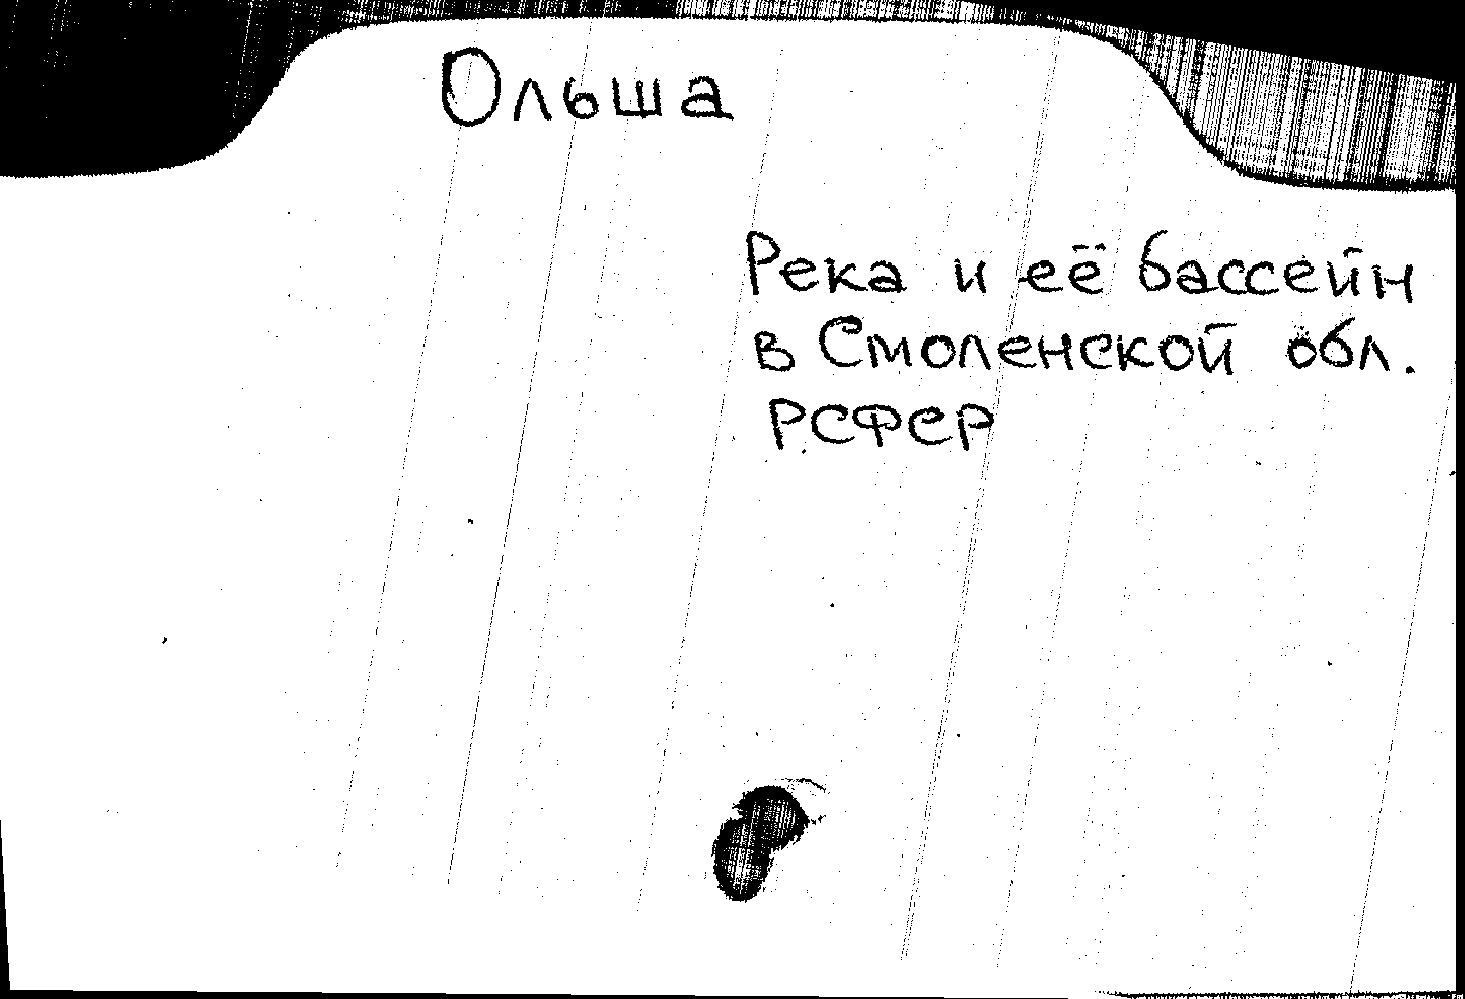 Ольша
Река и её бассейн
в Смоленской обл.
РСФСР